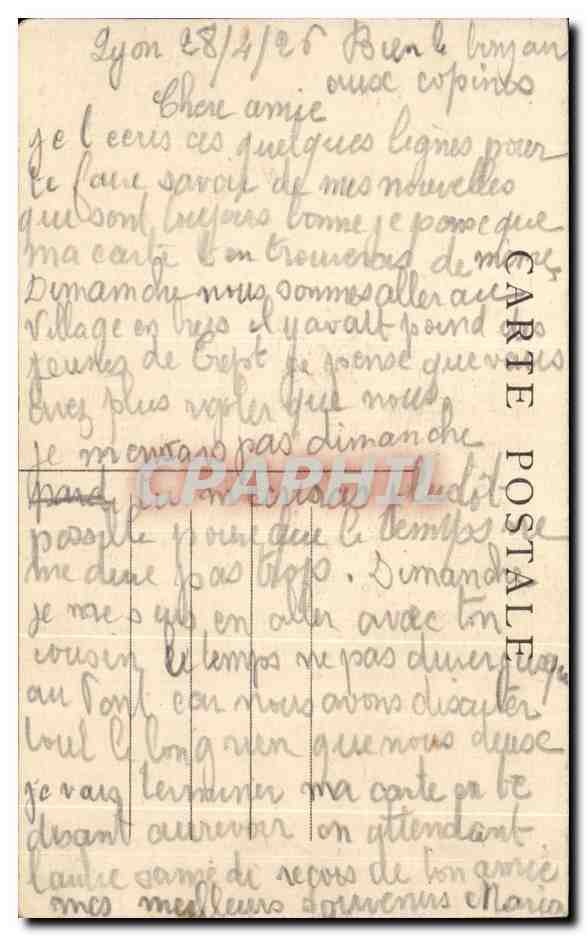 Lyon 28/4/26 Bien le bonjour
aux copines
Chere amie
je t ecris ces quelques lignes pour
te faire savoir de mes nouvelles
qui sont toujours bonne je pense que
ma carte t en trouveras de meme
Dimanche nous sommes aller au
village en bus il y avait poind des
jeunes de Crept je pense que vous
avez plus rigoler que nous
je m'envais pas dimanche
CPAPHIL
possible pour que le temps ne
me dure pas trop. Dimanche
je me suis en aller avec ton
cousin le temps ne pas durer jusqu
au Pont car nous avons discuter
tout le long rien que nous deuse
je vais terminer ma carte en te
disant aurevoir en attendant
l autre samedi reçois de ton amie
mes meilleurs souvenirs Maria
CARTE POSTALE